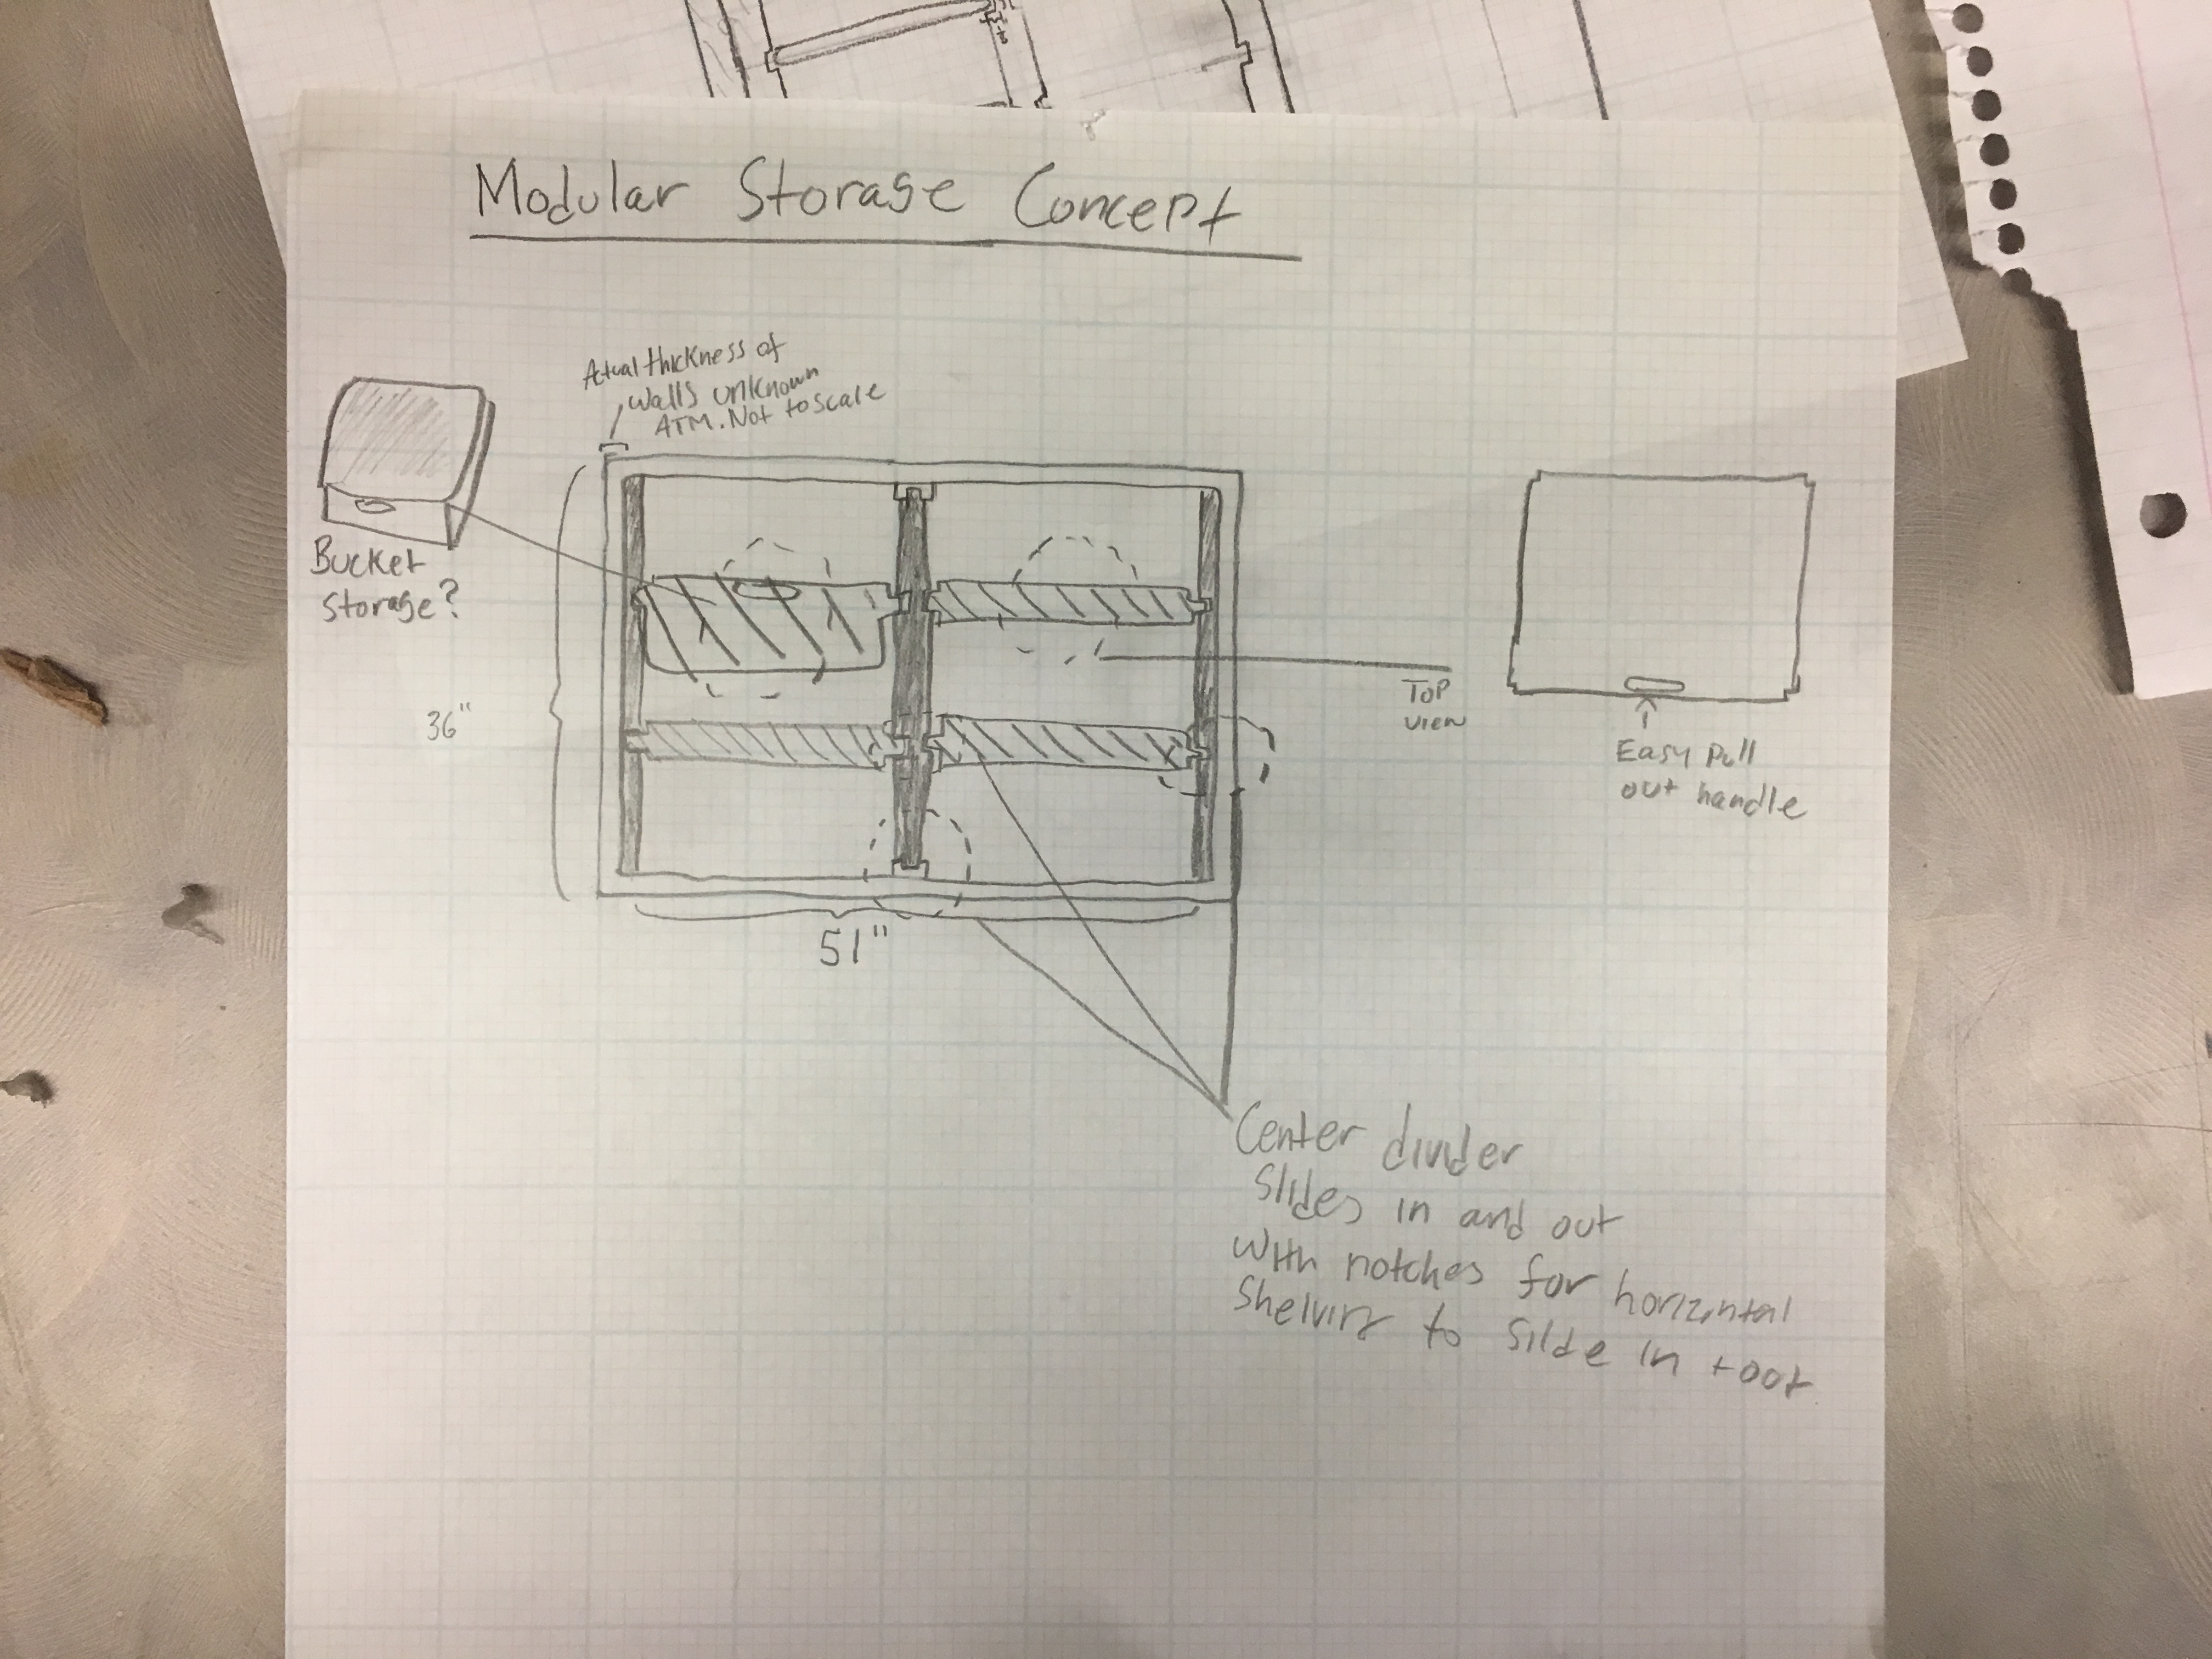 Modular Storage Concept
Actual thickness of
walls unknown
ATM. Not to scale
Bucket
Storage?
36"
51"
Top
view
Easy pull
out handle
Center divider
Slides in and out
with notches for horizontal
Shelving to Slide in + oot